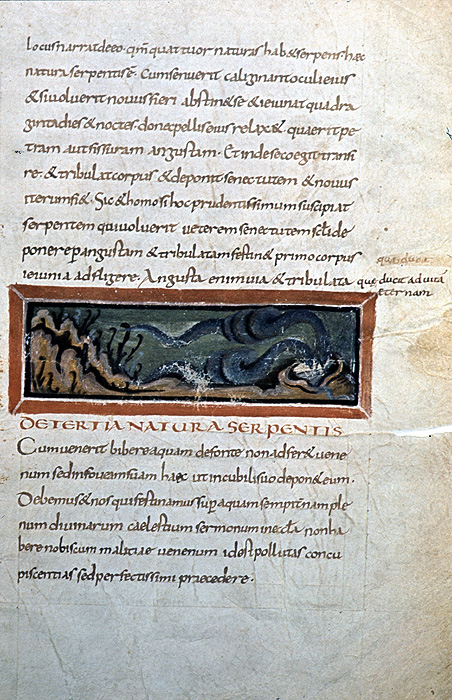 locus narrat deeo. qm quattuor naturas hab& serpens haec
natura serpentis ē. Cum senuerit caligināt oculi eius
& si voluerit nouus fieri abstin& se & ieiunat quadra
ginta dies & noctes. donec pellis eius relax&. quaerit pe
tram aut fissuram angustam. Et inde se coegit transi
re. & tribulat corpus & deponit senectutem & nouus
iterum fi&. Sic & homo si hoc prudentissimum suscipiat
serpentem qui uoluerit ueterem senectutem scli de
ponere p angustam & tribulatam festin& primo corpus
ieiunia adfligere. Angusta enim uia & tribulata que ducit ad uitā
que ducit
eternam
DE TERTIA NATURA SERPENTIS
Cum uenerit bibere aquam de fonte non adfer& uene
num sed in foueam suam haec ut in cubili suo depon& eum.
Debemus & nos qui festinamus sup aquam semptnam ple
num diuinarum caelestium sermonum in eccla non ha
bere nobiscum malitiae uenenum id est pollutas concu
piscentias sed perfectissimi praecedere.